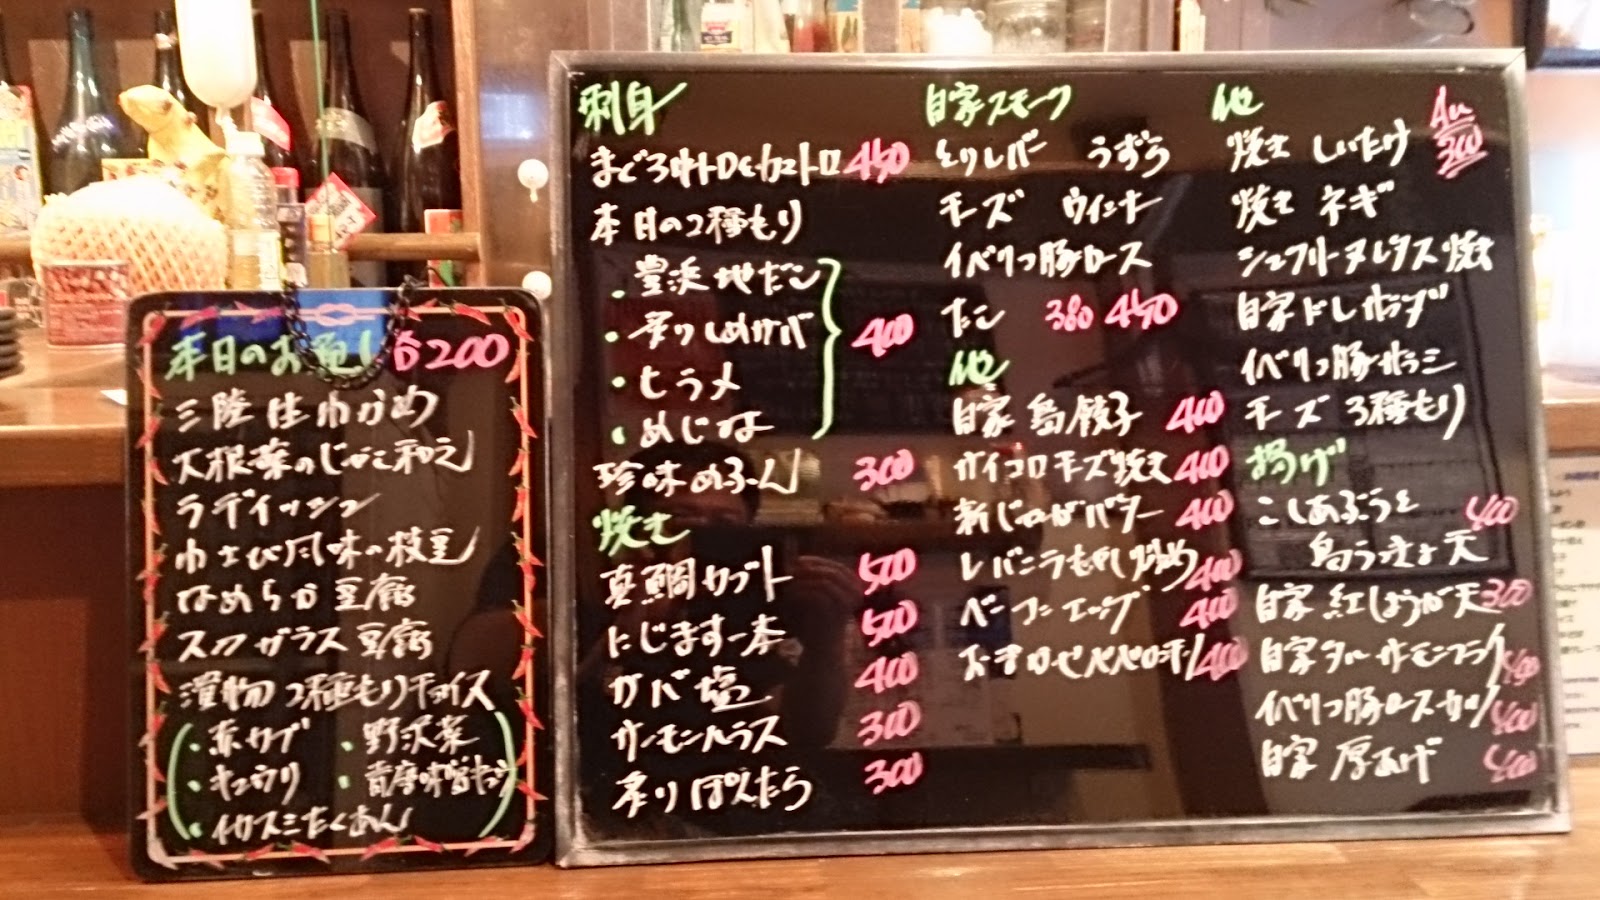 本日のお通し 各200
三陸生わかめ
大根葉のじゃこ和え
ラディッシュ
わさび風味の枝豆
なめらか豆腐
スクガラス豆腐
漬物2種もりチョイス
・赤カブ ・野沢菜
・キュウリ
・イカスミたくあん
刺身
450
本日の2種もり
・豊浜地だこ
・炙りしめサバ
・ヒラメ
・めじな
400
珍味めふん 300
焼き
真鯛カブト 500
にじます一本 500
サバ塩 400
サーモンハラス 300
炙りぽんたら 300
自家スモーク
とりレバー うずら
チーズ ウインナー
イベリコ豚ロース
たこ 380 450
他
自家鳥餃子 400
サイコロチーズ焼き 400
新じゃがバター 400
レバニラもやし炒め 400
ベーコンエッグ 400
400
他 All 300
焼きしいたけ
焼きネギ
シュフリーヌレタス焼き
自家ドレサラダ
イベリコ豚サラミ
チーズ3種もり
揚げ
こしあぶらと 400
鳥らっきょ天
自家紅しょうが天 300
自家タルサーモンフライ
イベリコ豚ロースカツ 400
自家厚あげ 400